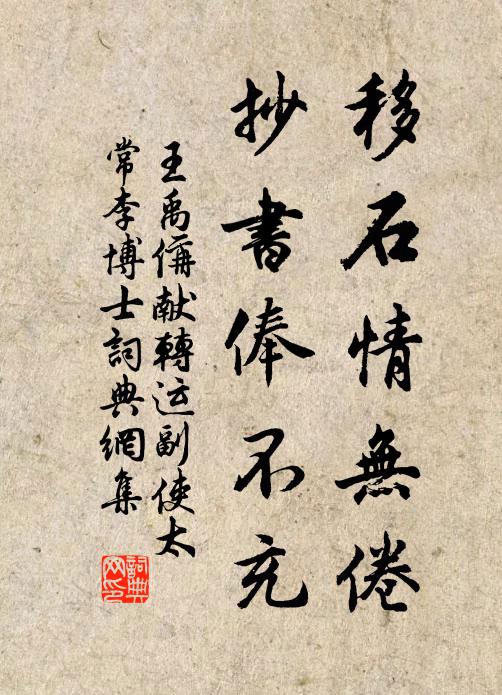 移石情無倦
抄書俸不充
王禹偁献轉运副使太
常李博士詞典網集
詞典
网印